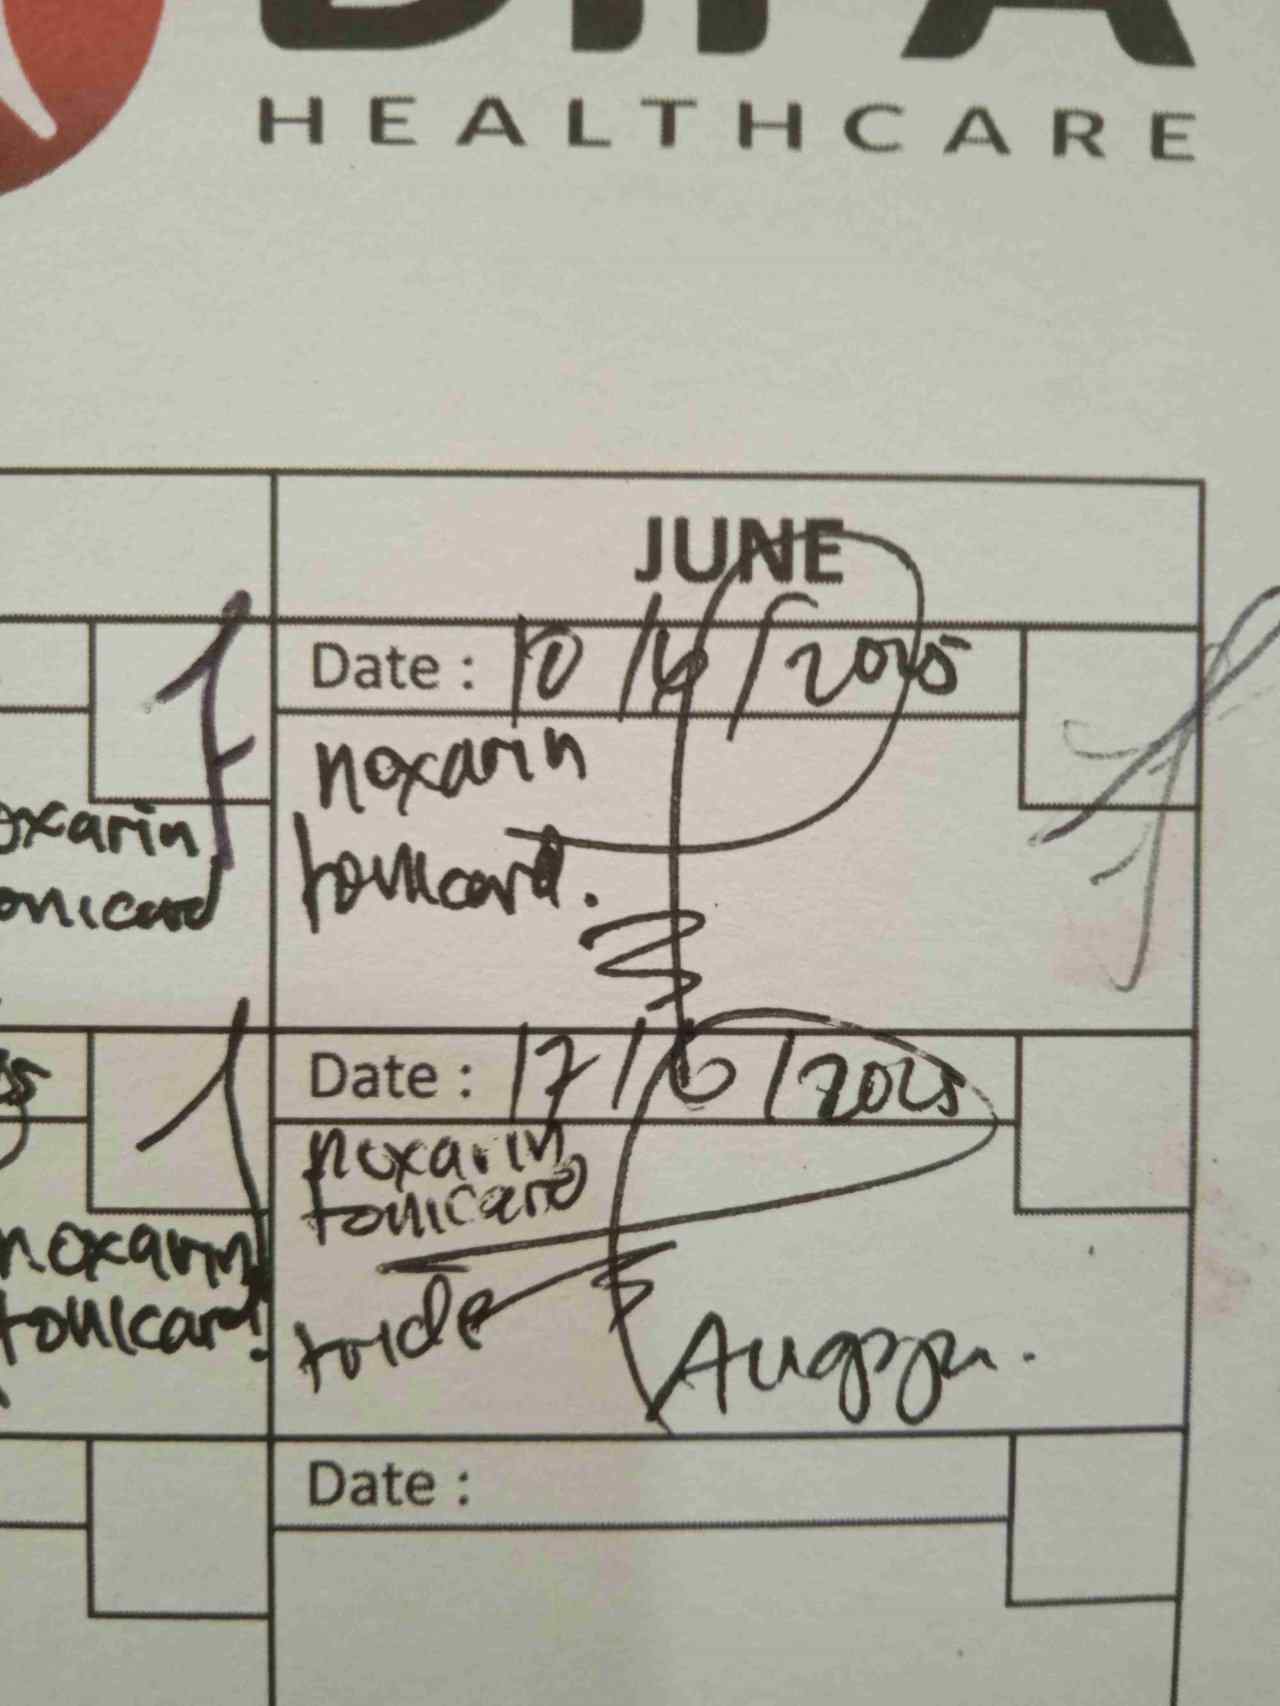 HEALTHCARE
JUNE
Date : 10/6/2025
noxarin
tonicard.
oxarin
onicard
Date : 17/6/2025
noxarin
tonicard
noxarin
tonicard.
Date :